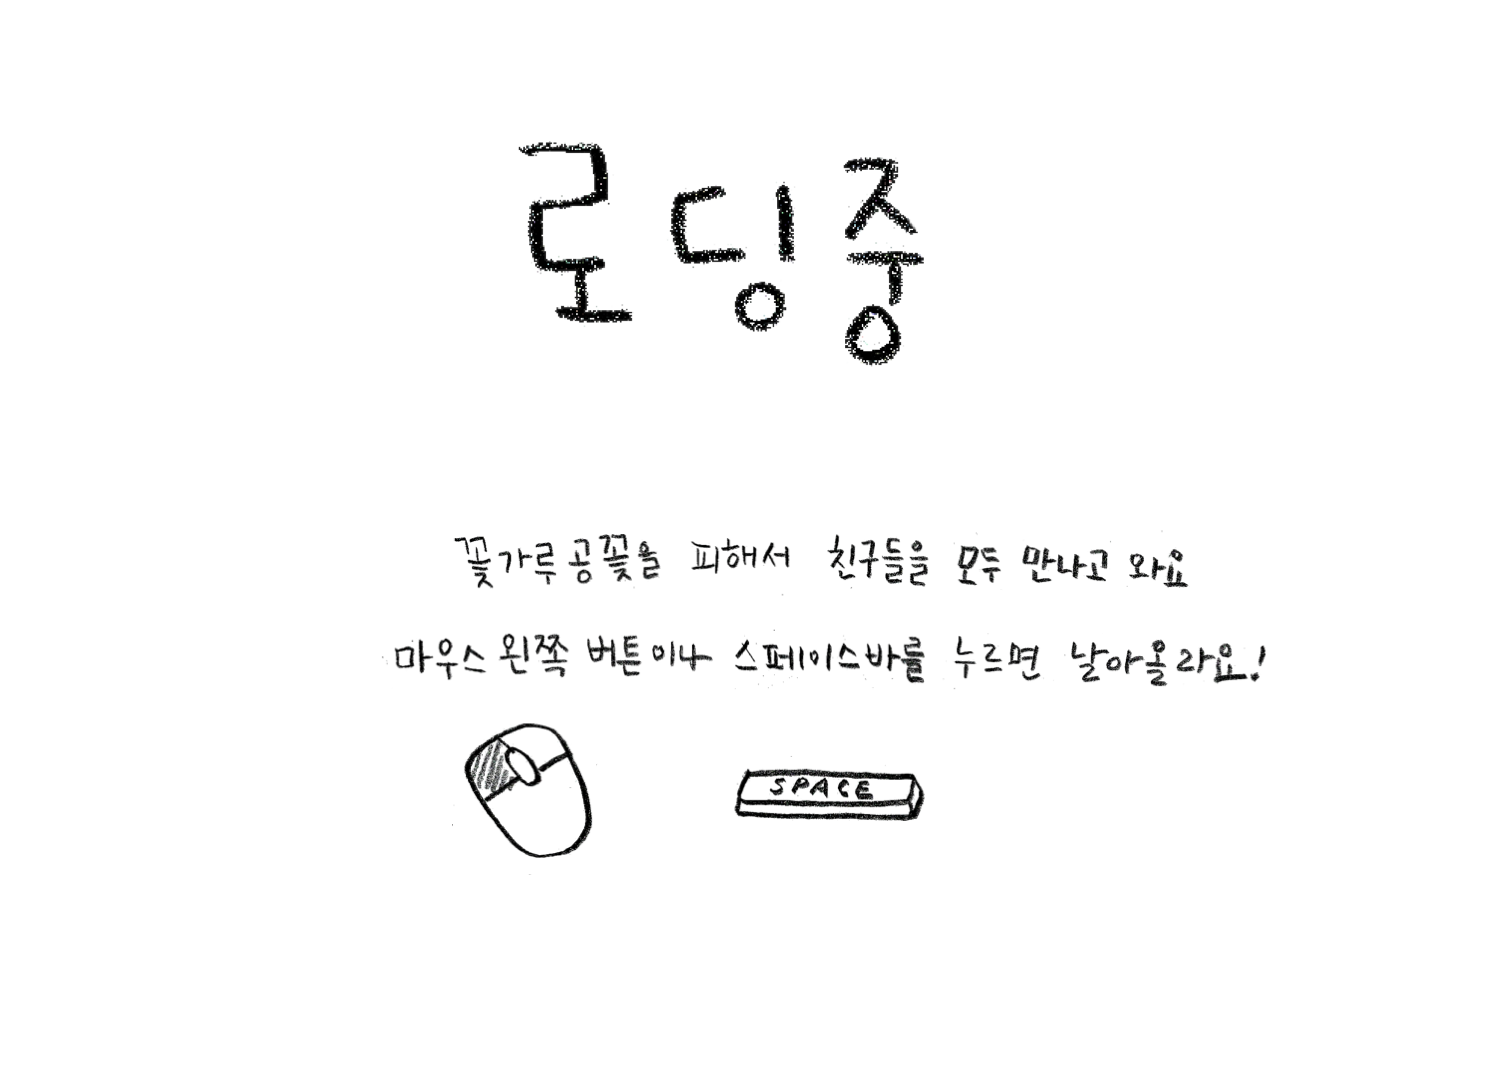 로딩중
꽃가루공꽃을 피해서 친구들을 모두 만나고 와요
마우스 왼쪽 버튼이나 스페이스바를 누르면 날아올라요!
SPACE